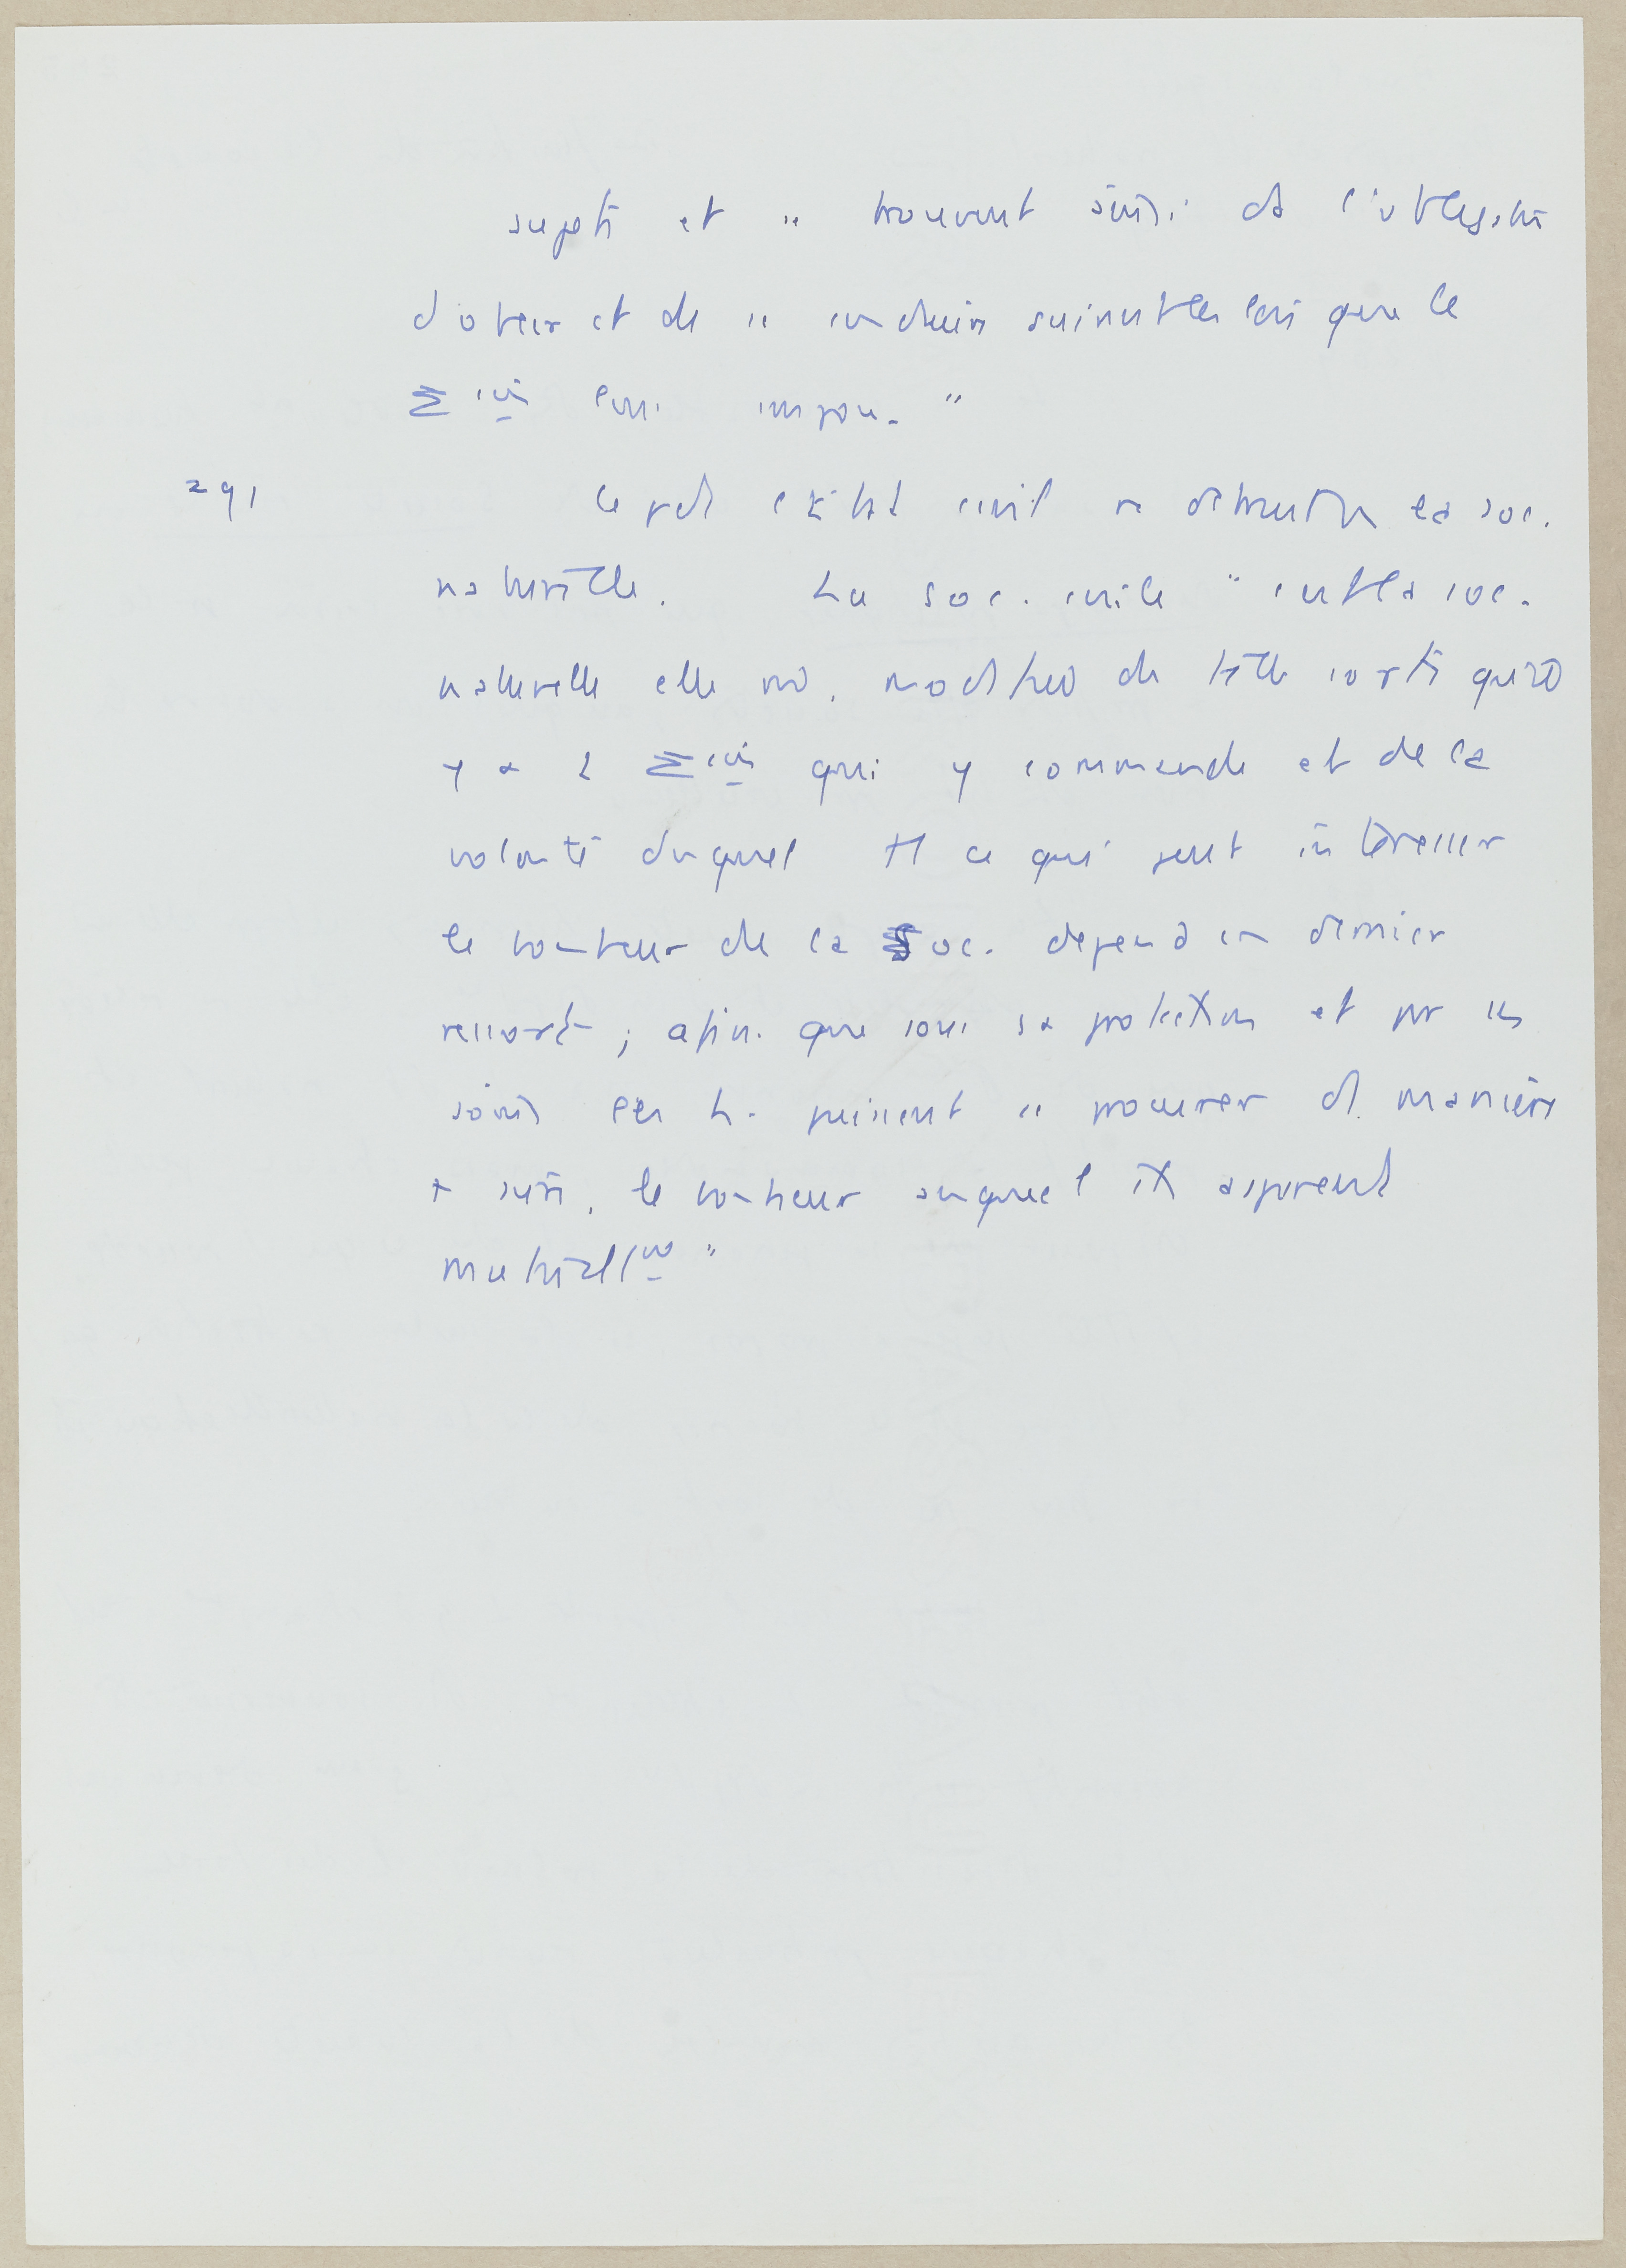 sujets et se trouvent ainsi ds l'obligation
d'obéir et de se conduire suivant les lois que le
Σain leur impose. "
291
Ce pdt l'état civil ne détruit pas la soc.
naturelle. La soc. civile " est la soc.
naturelle elle m̂, modifiée de telle sorte qu'il
y a 1 Σain qui y commande et de la
volonté duquel tt ce qui peut intéresser
le bonheur de la Soc. dépend en dernier
ressort ; afin que sous sa protection et par ses
soins les h. puissent se procurer d. manière
+ sûre, le bonheur auquel ils aspirent
naturellmt "